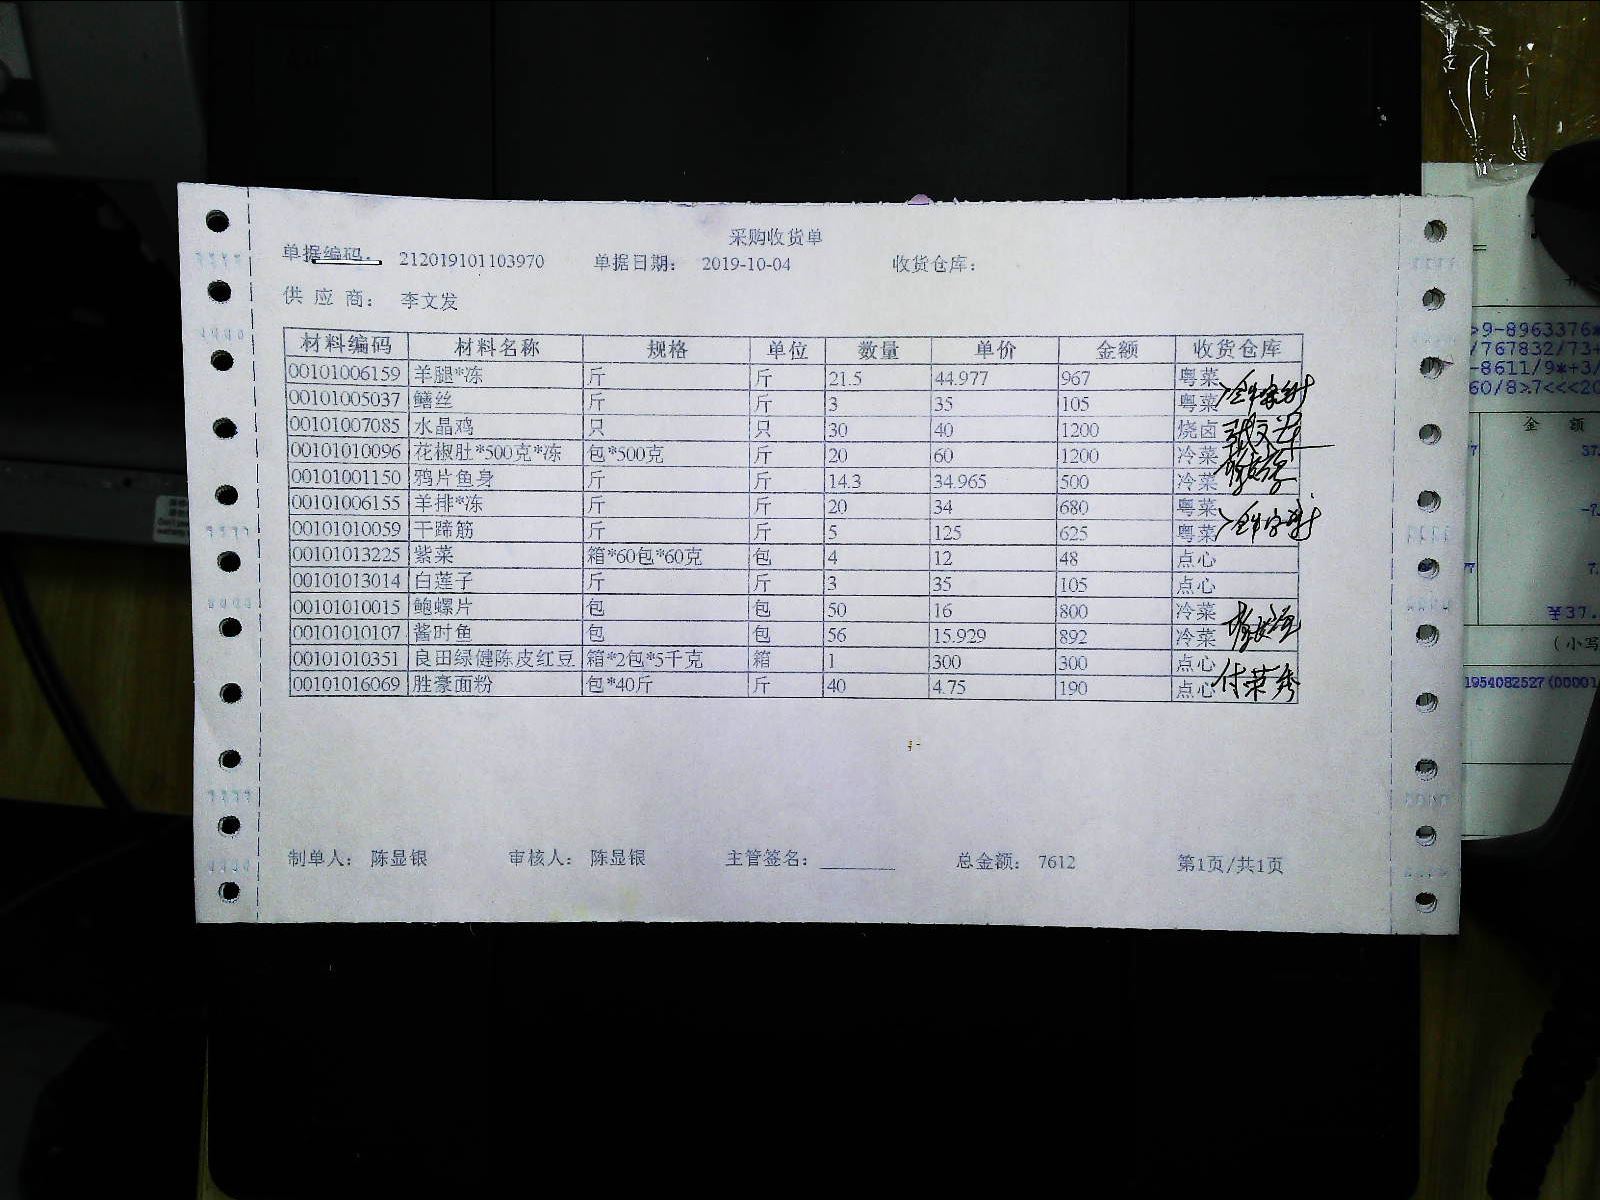 采购收货单
单据编码: 212019101103970 单据日期: 2019-10-04 收货仓库:
供 应 商: 李文发
材料编码 材料名称 规格 单位 数量 单价 金额 收货仓库
00101006159 羊腿*冻 斤 斤 21.5 44.977 967 粤菜
00101005037 鳝丝 斤 斤 3 35 105 粤菜
00101007085 水晶鸡 只 只 30 40 1200 烧卤
00101010096 花椒肚*500克*冻 包*500克 斤 20 60 1200 冷菜
00101001150 鸦片鱼身 斤 斤 14.3 34.965 500 冷菜
00101006155 羊排*冻 斤 斤 20 34 680 粤菜
00101010059 干蹄筋 斤 斤 5 125 625 粤菜
00101013225 紫菜 箱*60包*60克 包 4 12 48 点心
00101013014 白莲子 斤 斤 3 35 105 点心
00101010015 鲍螺片 包 包 50 16 800 冷菜
00101010107 酱时鱼 包 包 56 15.929 892 冷菜
00101010351 良田绿健陈皮红豆 箱*2包*5千克 箱 1 300 300 点心
00101016069 胜豪面粉 包*40斤 斤 40 4.75 190 点心 付荣秀
制单人: 陈显银 审核人: 陈显银 主管签名: 总金额: 7612 第1页/共1页
>9-8963376*
/767832/73+
-8611/9*+3/
60/8>7<<<20
金 额
¥37.
(小写
1954082527(00001